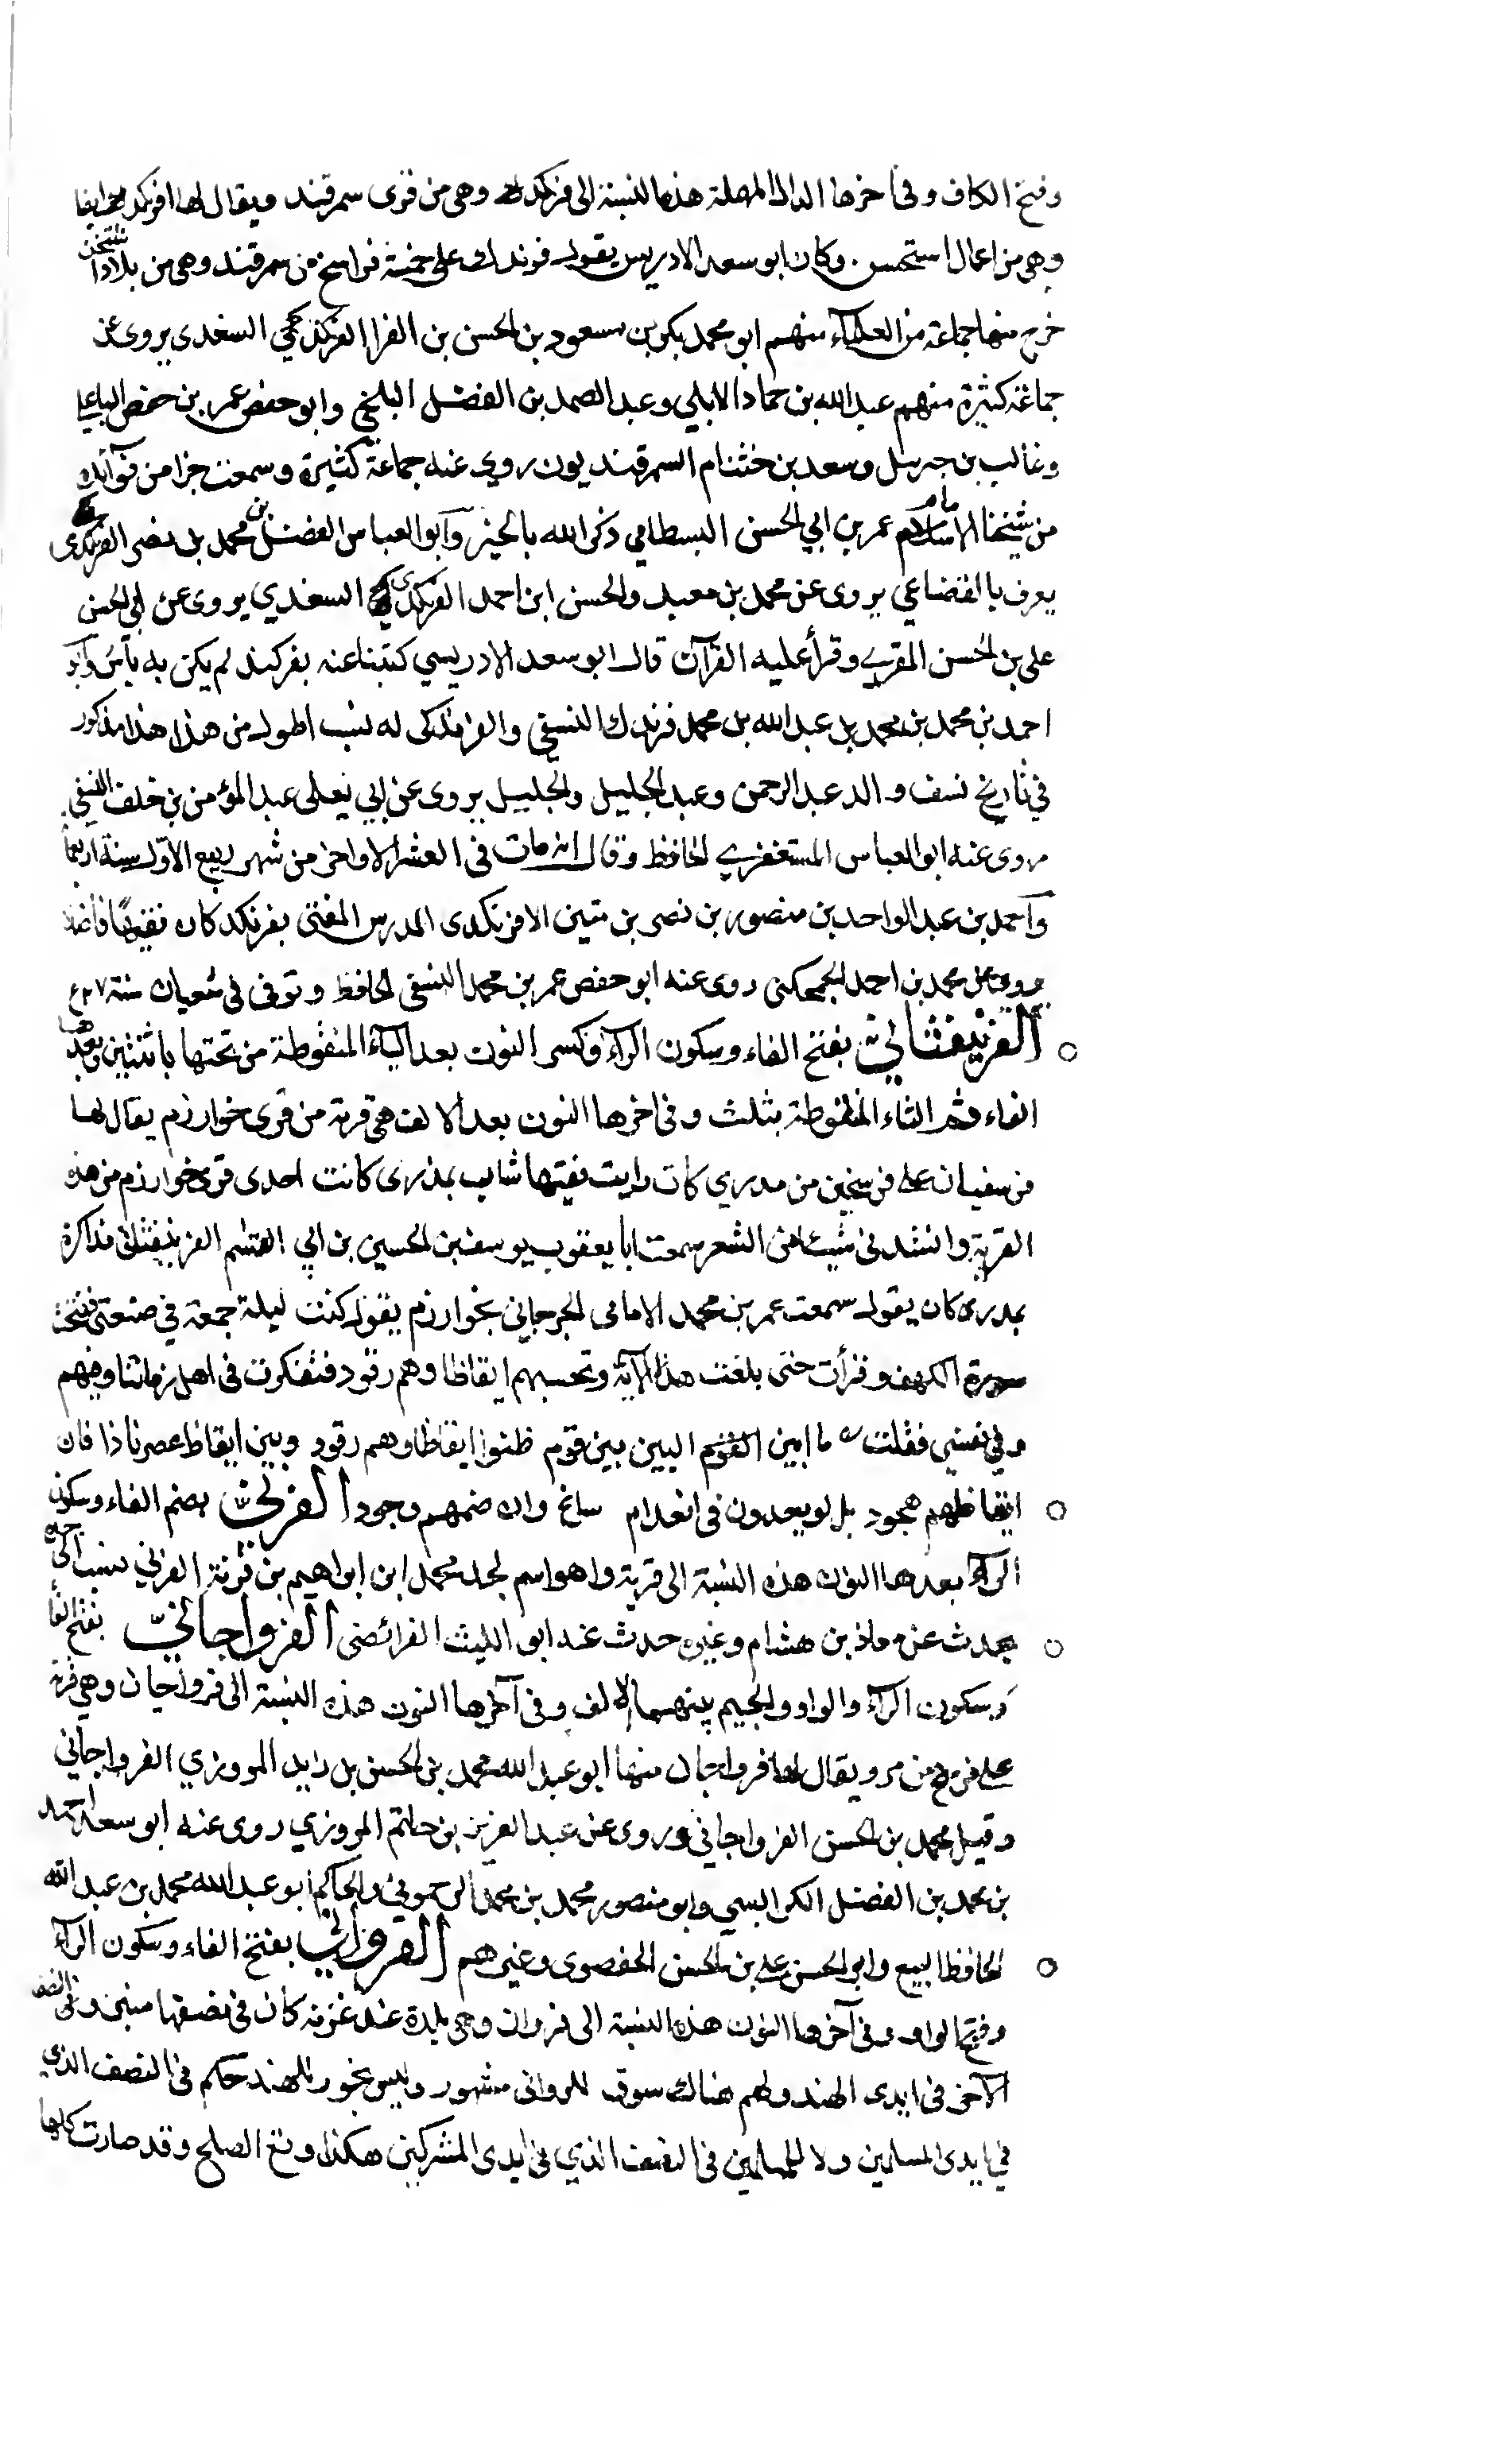 وفتح الكاف وفي أخرها الدال المهملة هذه النسبة الى فرنكد وهى من قرى سمرقند ويقال لها افرنكد
وهى من اعمال استحسن وكان ابو سعد الادريس يقول فرنكد على خمسة فراسخ من سمرقند وهى من بلاد
خرج منها جماعة من العلماء منهم ابو محمد بكر بن مسعود بن الحسن بن الفرا الفرنكدي السغدى يروى عن
جماعة كثيرة منهم عبد الله بن حماد الابلي وعبد الصمد بن الفضل البلخي وابو حفص عمر بن حفص
وغالب بن جبرسل وسعد بن خشنام السمرقنديون روى عنه جماعة كثيرة وسمعت جزا من فوائده
من شيخنا الامام عمر بن ابي الحسن البسطامي ذكر الله بالخير وابو العباس الفضل بن محمد بن نصر الفرنكدى
يعرف بالقضاعي يروى عن محمد بن معبد والحسن ابن احمد الفرنكدي السغدي يروى عن ابي الحسن
على بن الحسن المقري وقرأ عليه القرآن قال ابو سعد الادريسي كتبنا عنه بفركند لم يكن به بأس وابو
احمد بن محمد بن محمد بن عبد الله بن محمد فرندك النسفي والفرندكى له نسب اطول من هذا هذا مذكور
في تاريخ نسف والد عبد الرحمن وعبد الجليل والجليل يروى عن ابي يعلى عبد المؤمن بن خلف النسفي
روى عنه ابو العباس المستغفري الحافظ وقال انه مات فى العشر الاواخر من شهر ربيع الاول سنة اربعما
واحمد بن عبد الواحد بن منصور بن نصر بن متين الافرنكدى المدرس المفتى بفرنكد كان فقيها فاضلا
يروى عن محمد بن احمد الجمحكثى روى عنه ابو حفص عمر بن محمد النسفى الحافظ وتوفى فى شعبان سنة
الفرنيفثاني بفتح الفاء وسكون الراء وكسر النون بعد الياء المنقوطة من تحتها باثنتين وبعدها
الفاء وثم الثاء المنقوطة بثلث وفى اخرها النون بعد الالف هى قرية من قرى خوارزم يقال لها
فرنيفثان على فرسخين من مدرى كات رايت فقيها شاب بمدرى كانت احدى قرى خوارزم من هذه
القرية وانشدنى شيئا من الشعر سمعت ابا يعقوب يوسف بن الحسين بن ابي القسم الفرنيفثانى مذاكرة
بمدرى كان يقول سمعت عمر بن محمد الامامى الجرجاني بخوارزم يقول كنت ليلة جمعة في صنعتى ففتحت
سورة الكهف وقرأت حتى بلغت هذه الآية وتحسبهم ايقاظا وهم رقود فتفكرت فى اهل زماننا وفيهم
وفي نفسي فقلت ما ابين القوم البين بين قوم ظنوا ايقاظا وهم رقود وبين ايقاظ عصرنا ذا فان
ايقاظهم هجود بل لو يعدون فى انعدام ساغ وان ضمهم وجود الفرني بضم الفاء وسكون
الراء بعدها النون هذه النسبة الى قرية واهو اسم لجد محمد ابن ابراهيم بن فرنة الفرني نسب الى جده
يحدث عن معاذ بن هشام وغيره حدث عنه ابو الليث الفرائضى الفرواجاني بفتح الفاء
وسكون الراء والواو والجيم بينهما الالف وفى آخرها النون هذه النسبة الى فرواجان وهي قرية
على فرسخ من مرو ويقال لها فرواجان منها ابو عبد الله محمد بن الحسن بن زايد المروزي الفرواجاني
وقيل محمد بن الحسن الفرواجاني وروى عن عبد العزيز بن حاتم المروزي روى عنه ابو سعد احمد
بن محمد بن الفضل الكرابيسي وابو منصور محمد بن محمد الرحموئي والحاكم ابو عبد الله محمد بن عبد الله
الحافظ البيع وابو الحسن على بن الحسن الحفصوى وغيرهم الفرواني بفتح الفاء وسكون الراء
وفتح الواو وفى آخرها النون هذه النسبة الى فروان وهى بليدة عند غزنة كان فى نصفها منبر وفى النصف
الآخر فى ايدى الهند ولهم هناك سوق للروانى مشهور وليس يجوز للهند حكم فى النصف الذي
فى ايدى المسلمين ولا للمسلمين فى النصف الذي فى ايدى المشركين هكذا وقع الصلح وقد صارت كلها